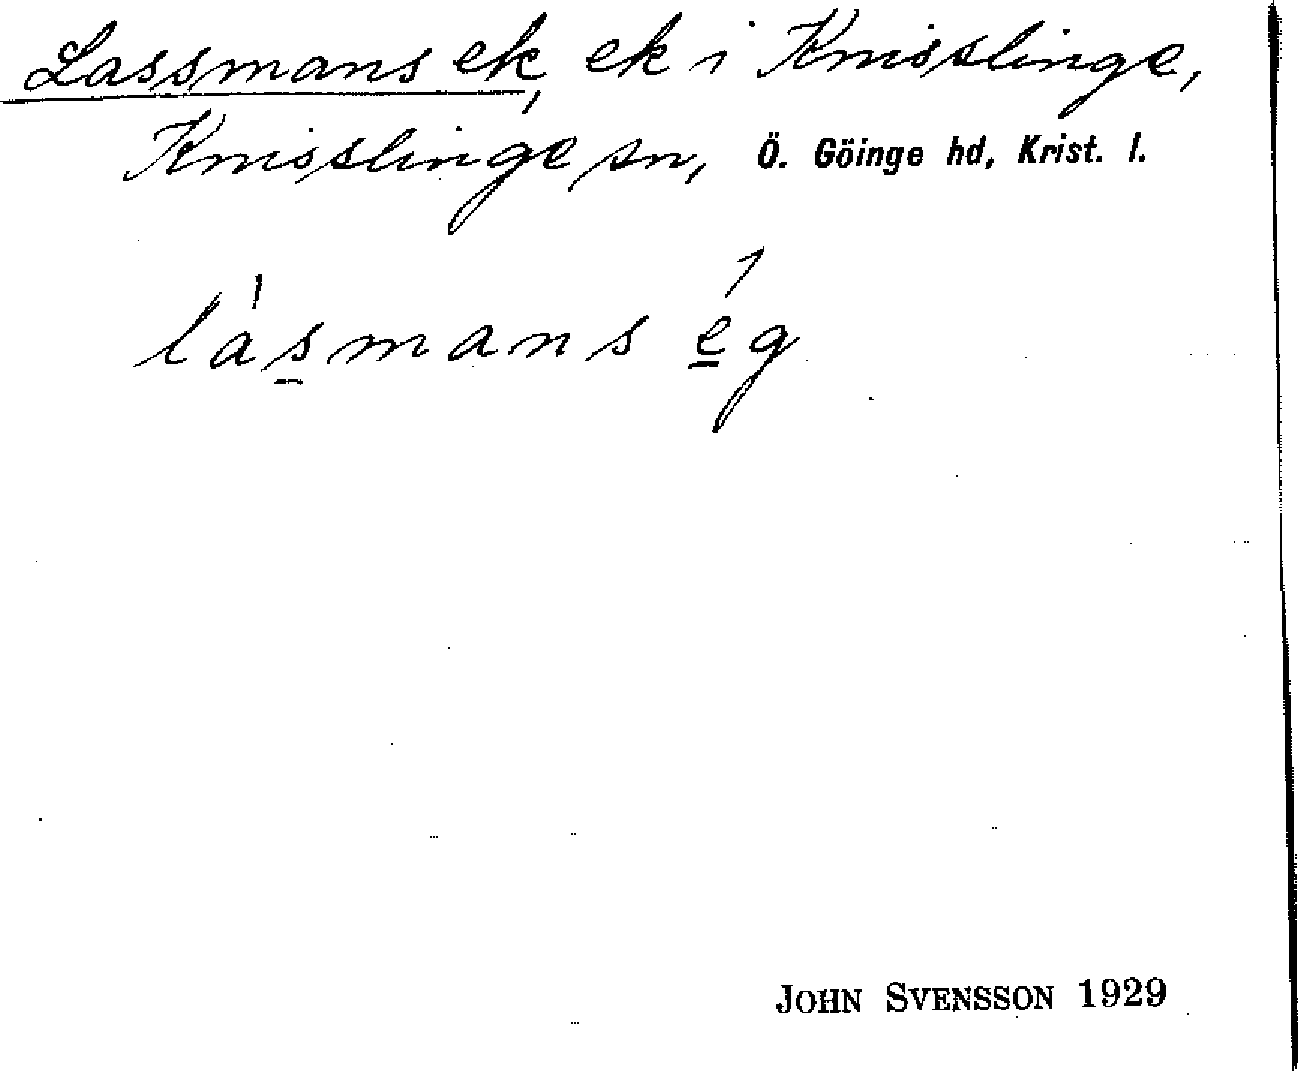 Lassmans ek, ek i Knisslinge,
Knisslinge sn, Ö. Göinge hd, Krist. l.
làsmans ég
JOHN SVENSSON 1929